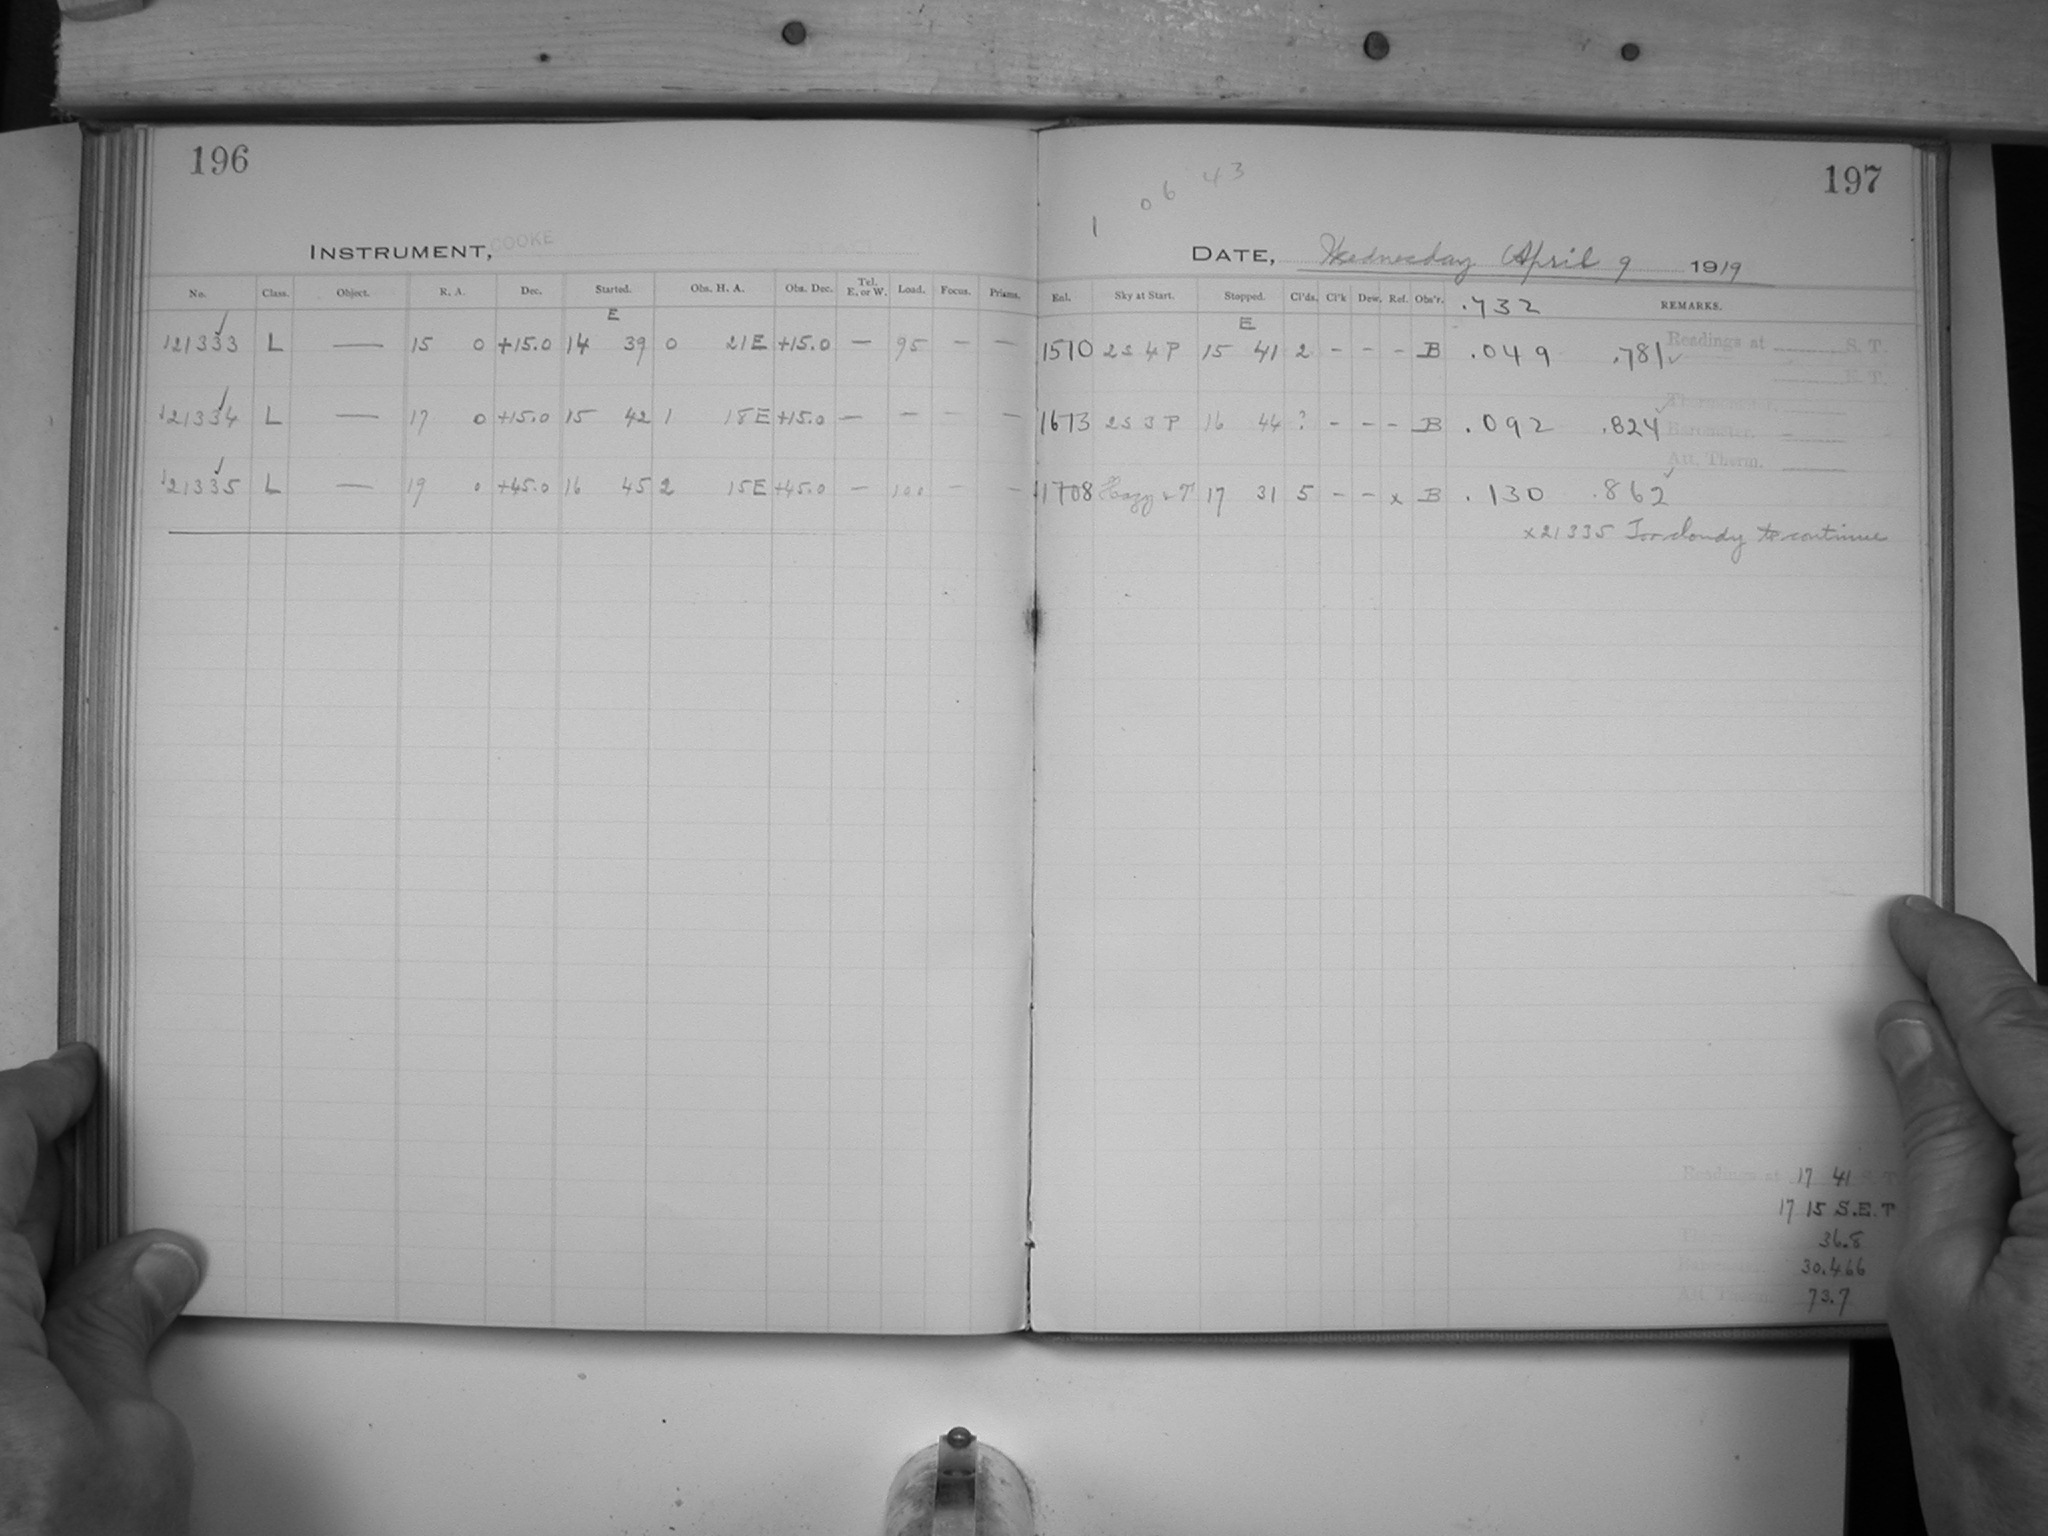 196
INSTRUMENT, COOKE
No. Class. Object. R. A. Dec. Started. Obs. H. A. Obs. Dec. Tel. E. or W. Load. Focus. Prisms.
E
21333 L — 15 0 +15.0 14 39 0 21E +15.0 — 95 — —
21334 L — 17 0 +15.0 15 42 1 18E +15.0 — — — —
21335 L — 19 0 +45.0 16 45 2 15E +45.0 — 100 — —
197
1 0 6 43
DATE, Wednesday April 9 1919
Eol. Sky at Start. Stopped. Cl'ds. Cl'k Dew. Ref. Obs'r. .732 REMARKS.
E
1510 2S 4P 15 41 2 - - - B .049 .781 ✓
1673 2S 3P 16 44 ? - - - B .092 .824 ✓
1708 Hazy 17 31 5 - - x B .130 .862 ✓
Readings at S. T.
E. T.
Barometer,
Att. Therm.
x21335 Too cloudy to continue
Readings at 17 41 S. T.
17 15 S.E.T
36.8
Barometer, 30.466
Att. Therm. 73.7